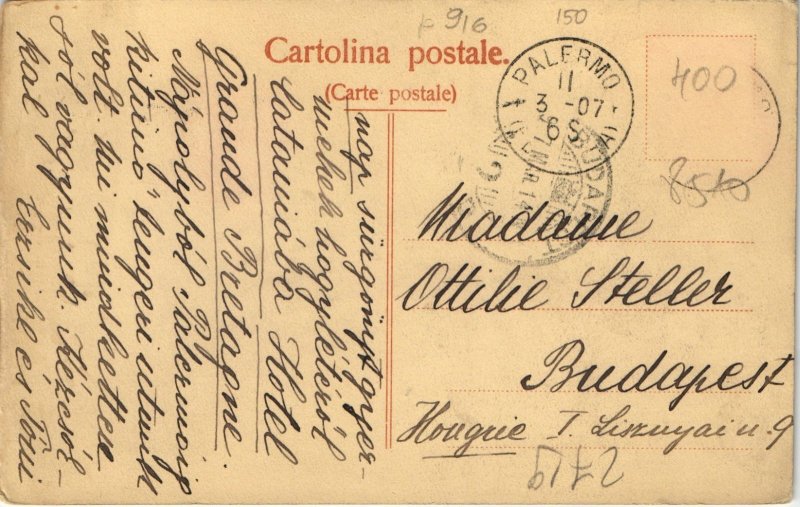 916
150
Cartolina postale.
(Carte postale)
PALERMO
11
3 -07
6 S
400
BUDAPEST
8510
nap sürgönyt gyer-
mekek hogylétéről
Cataniába Hotel
Grande Bretagne
Nápolyból Palermoig
kitünő tengeri utunk
volt. mi mindketten
jól vagyunk. Kézcsók-
kal Terzsike és Toni
Madame
Ottilie Steller
Budapest
Hongrie I. Lisznyai u. 9